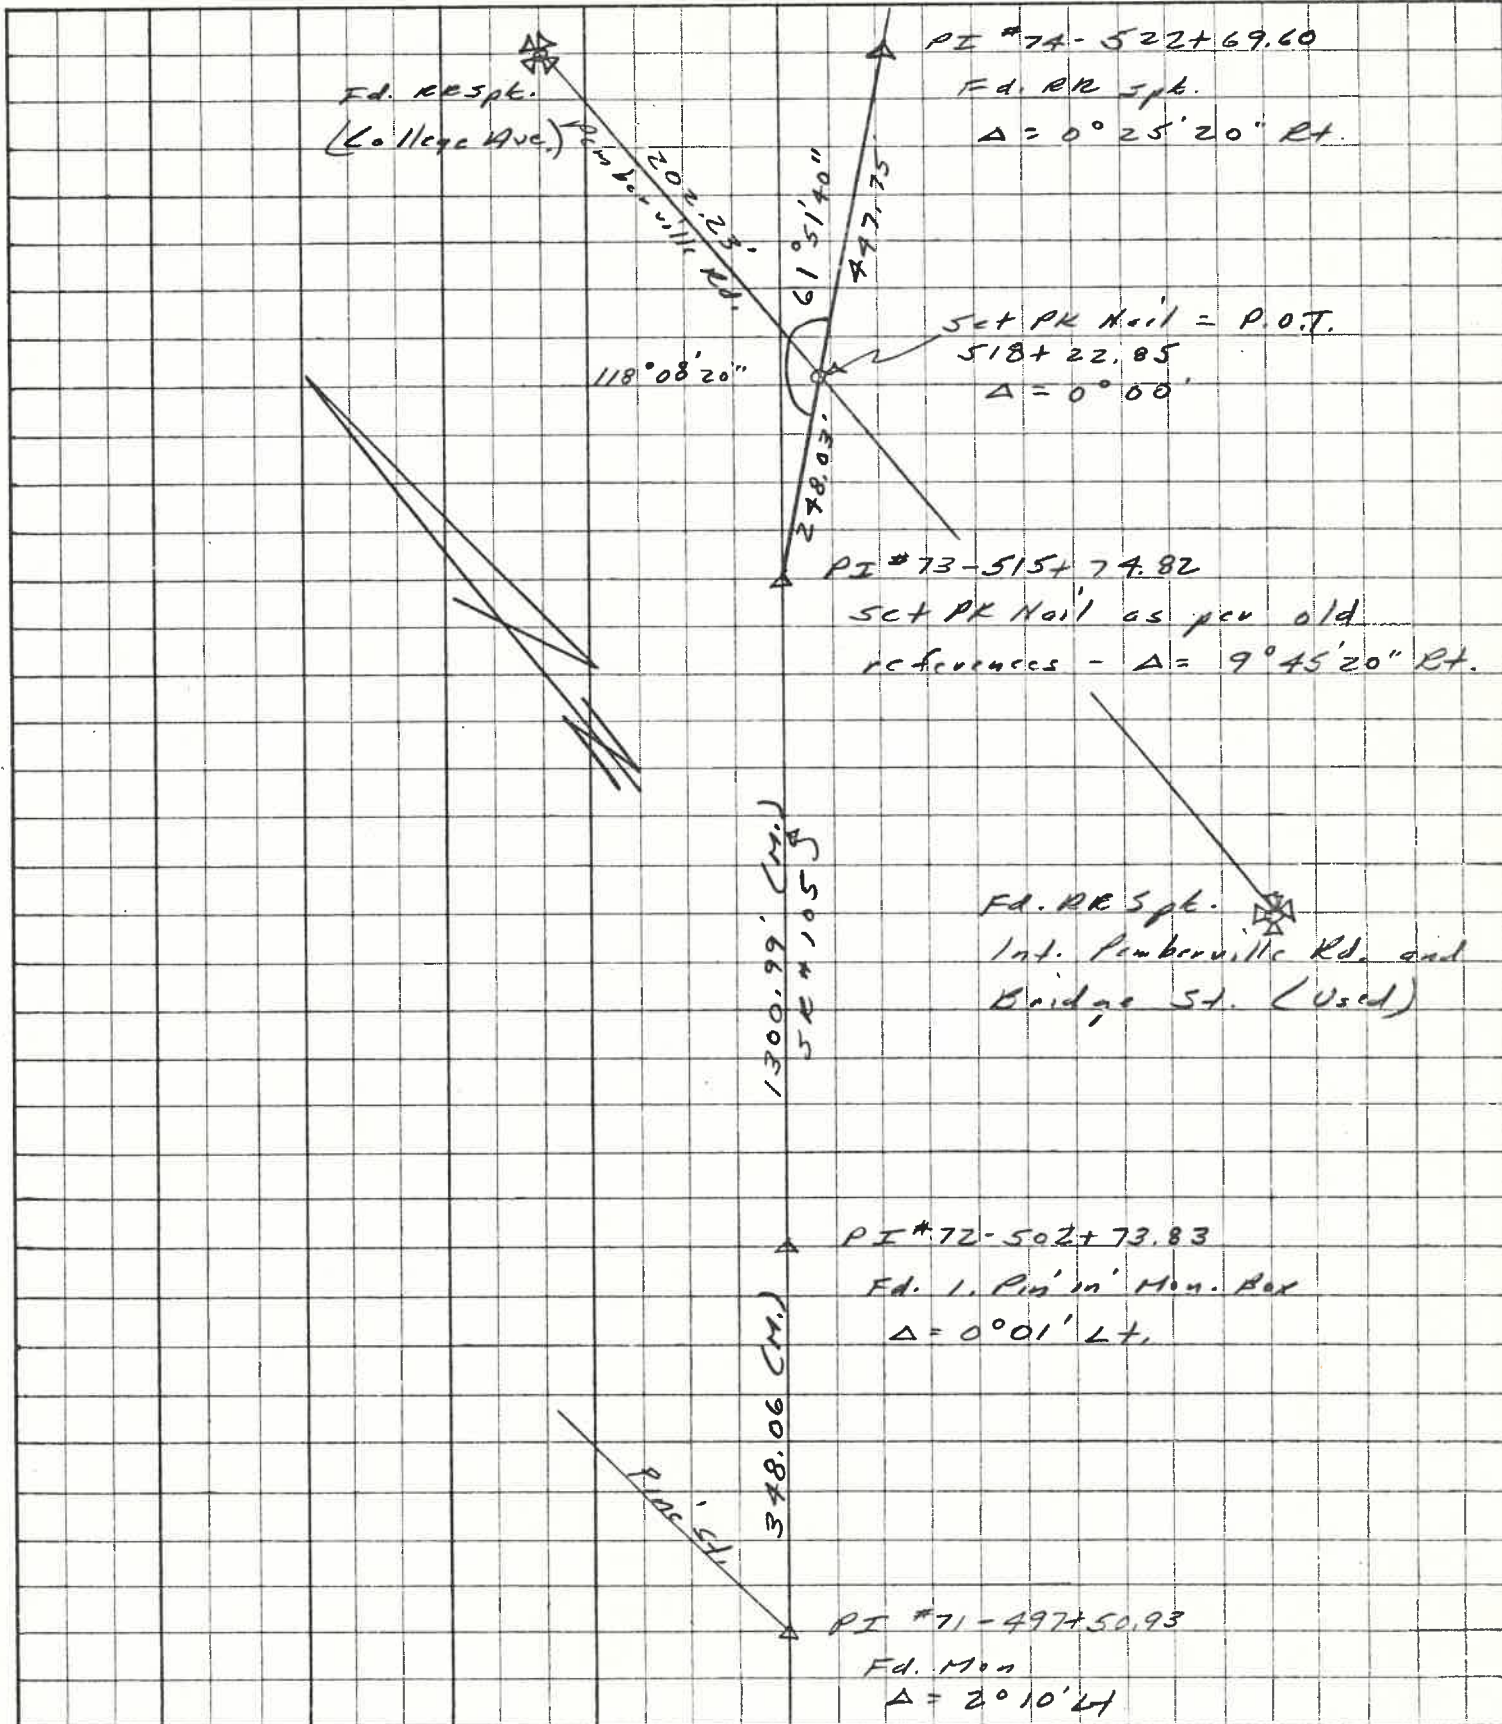 PI #74 - 522+69.60
Fd. RR Spk.
Δ = 0°25'20" Rt.
Fd. RR Spk.
(College Ave.)
Pemberville Rd.
202.23'
61°51'40"
447.75
Set PK Nail = P.O.T.
518+22.85
Δ = 0°00'
118°08'20"
248.03'
PI #73-515+74.82
Set PK Nail as per old
references - Δ = 9°45'20" Rt.
1300.99' (M.)
SR #105
Fd. RR Spk.
Int. Pemberville Rd. and
Bridge St. (Used)
PI #72-502+73.83
Fd. I. Pin in Mon. Box
Δ = 0°01' Lt.
348.06 (M.)
Pine St.
PI #71-497+50.93
Fd. Mon
Δ = 2°10' Lt